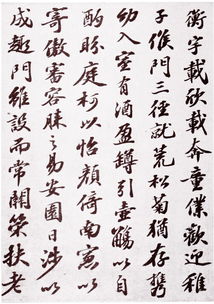 衡宇載欣載奔童僕歡迎稚
子候門三徑就荒松菊猶存携
幼入室有酒盈罇引壺觴以自
酌眄庭柯以怡顔倚南窻以
寄傲審容膝之易安園日涉以
成趣門雖設而常關策扶老